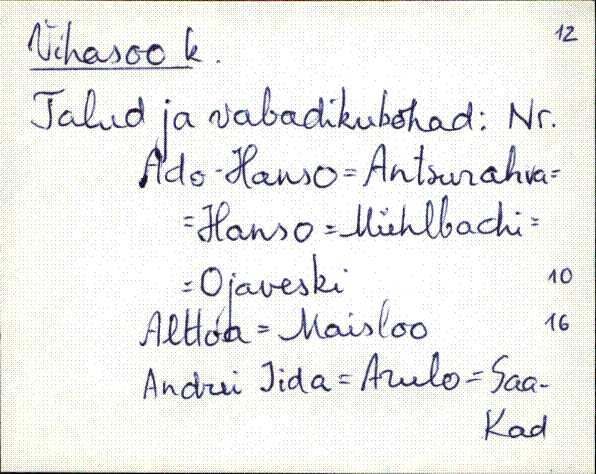 12
Vihasoo k.
Talud ja vabadikukohad: Nr.
Ado-Hanso = Antsurahva =
= Hanso = Mühlbachi =
= Ojaveski 10
Alttoa = Maisloo 16
Andrei Iida = Arulo = Saa-
kad